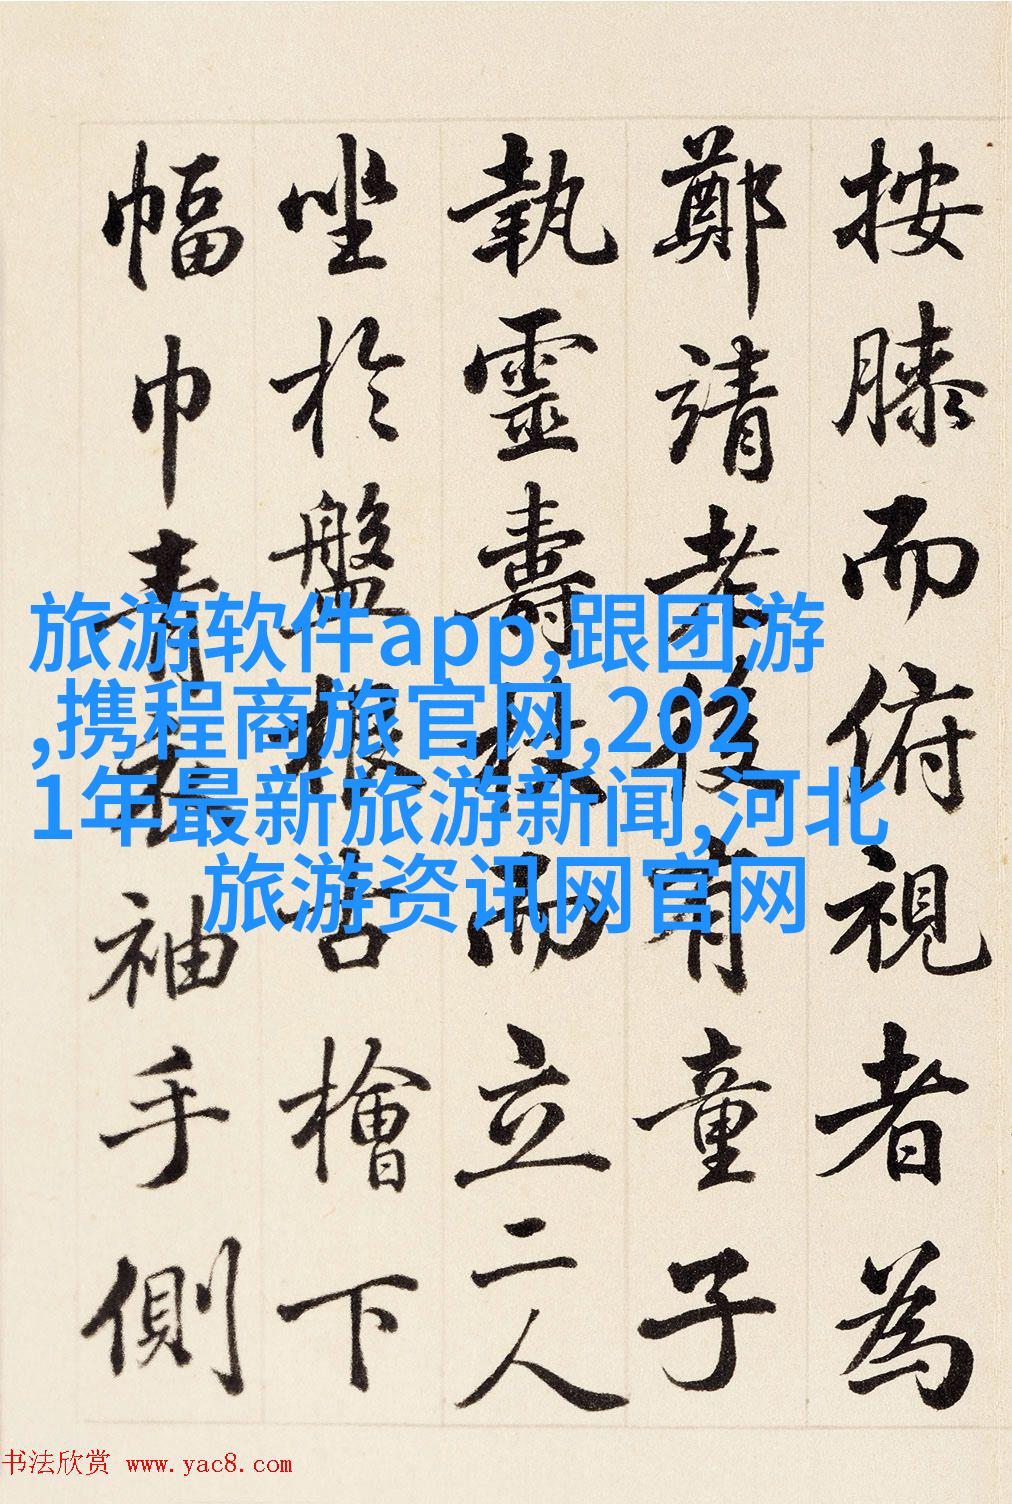 按膝而俯視者為
鄭靖老後有童子
執靈壽杖而立二人
坐於盤根古檜下
幅巾青衣袖手側
旅游软件app,跟团游
,携程商旅官网,202
1年最新旅游新闻,河北
旅游资讯网官网
书法欣赏 www.yac8.com